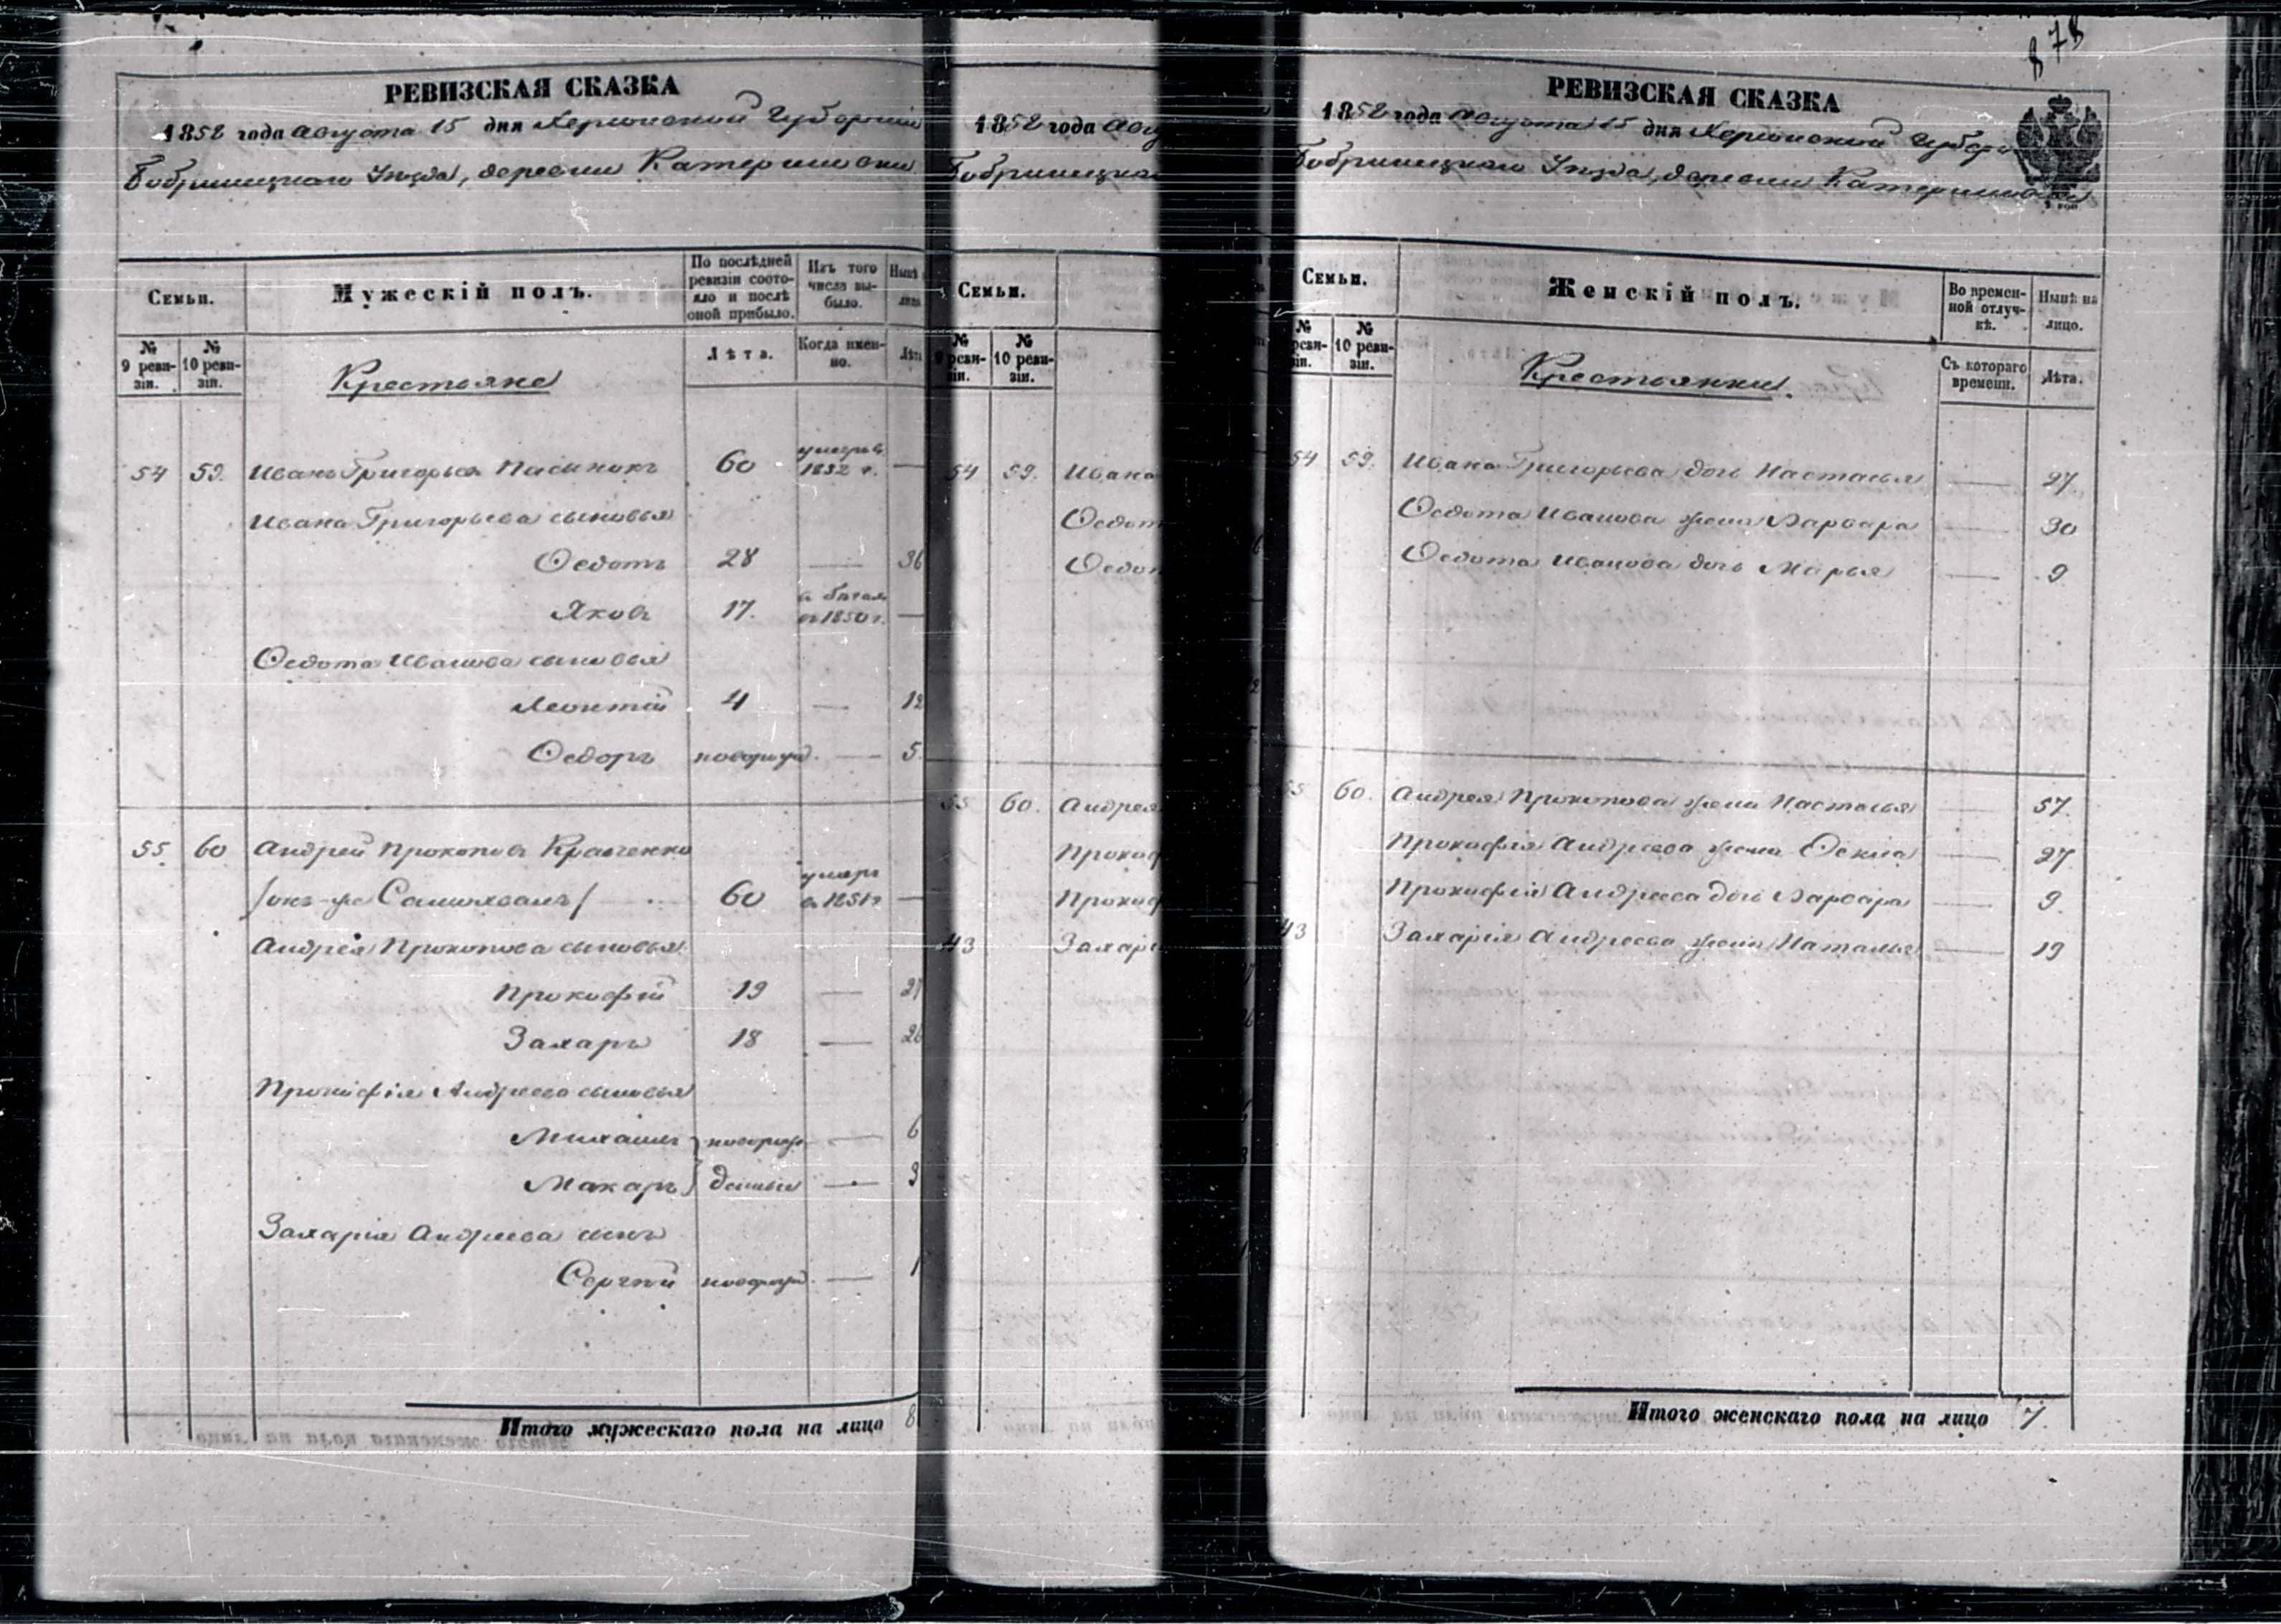 878
РЕВИЗСКАЯ СКАЗКА
1858 года Августа 15 дня Херсонской Губернии
Бобринецкаго Уезда, деревни Катериновки
Семьи.
Мужескій полъ.
По послѣдней ревизіи состояло и послѣ оной прибыло.
Изъ того числа выбыло.
Нынѣ
№ 9 ревизіи.
№ 10 ревизіи.
Крестьяне
Лѣта.
Когда именно.
Лѣта
54 59. Иванъ Григорьев 60 умеръ в 1852 г. —
Ивана Григорьева сыновья
Ѳедотъ 28 — 36
Яков 17. в 1850 г. —
Ѳедота Иванова сыновья
Леонтій 4 — 12
Ѳедоръ новорожд. — 5
55. 60 Андрей Прокопов Кравченко
/онъ-же / 60 умеръ в 1851 г —
Андрея Прокопова сыновья
Прокофій 19 — 27
Захаръ 18 — 26
Прокофія Андреева сыновья
Михаилъ } новорож — 6
Макаръ } денные — 3
Захарія Андреева сынъ
Сергѣй новорожд. — 1
Итого мужескаго пола на лицо 8
1858 года Авгу
Бобринецкаг
Семьи.
9 ревизіи.
№ 10 ревизіи.
54 59. Ивана
Ѳедот
Ѳедот
55 60. Андрея
Прокоф
Прокоф
43 Захарі
РЕВИЗСКАЯ СКАЗКА
1858 года Августа 15 дня Херсонской Губерн
Бобринецкаго Уезда, деревни Катериновки
Семьи.
Женскій полъ.
Во временной отлучкѣ.
Нынѣ на лицо.
№ ревизіи.
№ 10 ревизіи.
Крестьянки.
Съ котораго времени.
Лѣта.
54 59. Ивана Григорьева дочь Настасья — 27.
Ѳедота Иванова жена Варвара — 30
Ѳедота Иванова дочь Марья — 9
55 60. Андрея Прокопова жена Настасья — 57.
Прокофія Андреева жена — 27
Прокофія Андреева дочь Варвара — 9.
43 Захарія Андреева жена Наталья — 19
Итого женскаго пола на лицо 7.